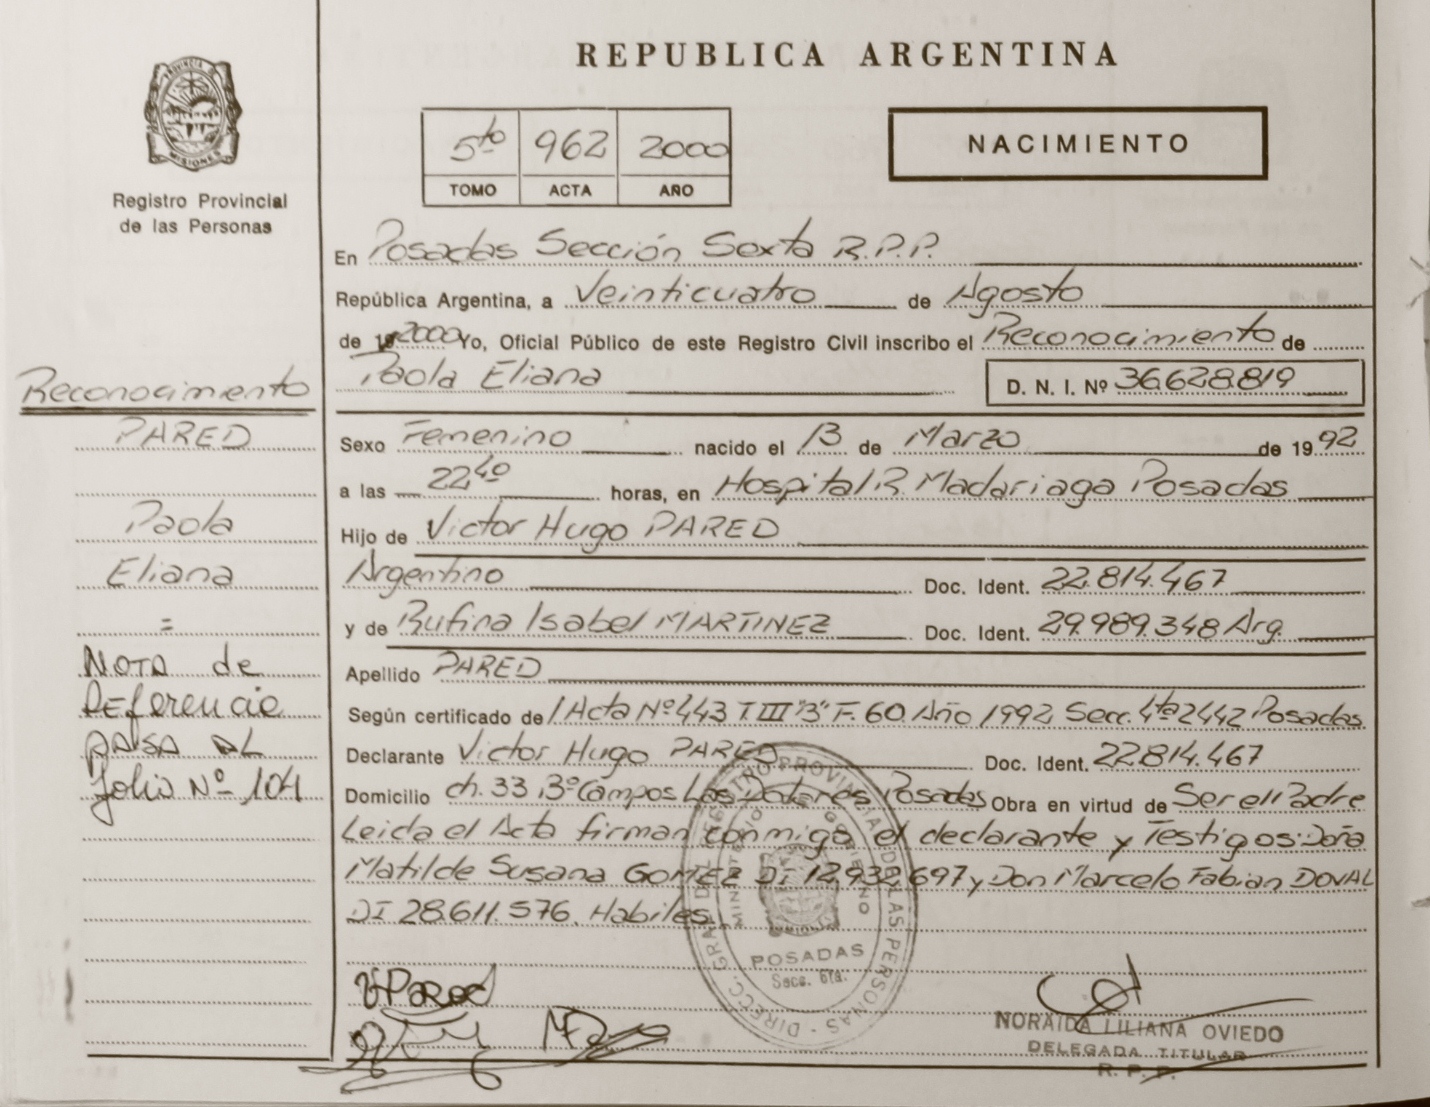 REPUBLICA ARGENTINA
PROVINCIA D
MISIONES
Registro Provincial
de las Personas
5to 962 2000
TOMO ACTA AÑO
NACIMIENTO
En Posadas Sección Sexta R.P.P.
República Argentina, a Veinticuatro de Agosto
de 2000 Yo, Oficial Público de este Registro Civil inscribo el Reconocimiento de
Paola Eliana D. N. I. Nº 36.628.819
Reconocimiento
PARED
Paola
Eliana
=
NOTA de
Referencia
PASA AL
folio Nº 104
Sexo Femenino nacido el 13 de Marzo de 1992
a las 22 40 horas, en Hospital R. Madariaga Posadas
Hijo de Victor Hugo PARED
Argentino Doc. Ident. 22.814.467
y de Rufina Isabel MARTINEZ Doc. Ident. 29.989.348 Arg.
Apellido PARED
Según certificado de / Acta Nº 443 T. III "B" F. 60 Año 1992 Secc. 4ta 2442 Posadas
Declarante Victor Hugo PARED Doc. Ident. 22.814.467
Domicilio ch. 33 B° Campos Los Dolores Posadas Obra en virtud de Ser el Padre
Leida el Acta firman conmigo el declarante y Testigos: Doña
Matilde Susana GOMEZ DI 12.932.697 y Don Marcelo Fabian DOVAL
DI 28.611.576. Habiles.
DIRECC. GRAL DEL REGISTRO PROVINCIAL DE LAS PERSONAS
MINISTERIO GOBIERNO
POSADAS
Secc. 6ta.
VPared
NORAIDA LILIANA OVIEDO
DELEGADA TITULAR
R. P. P.